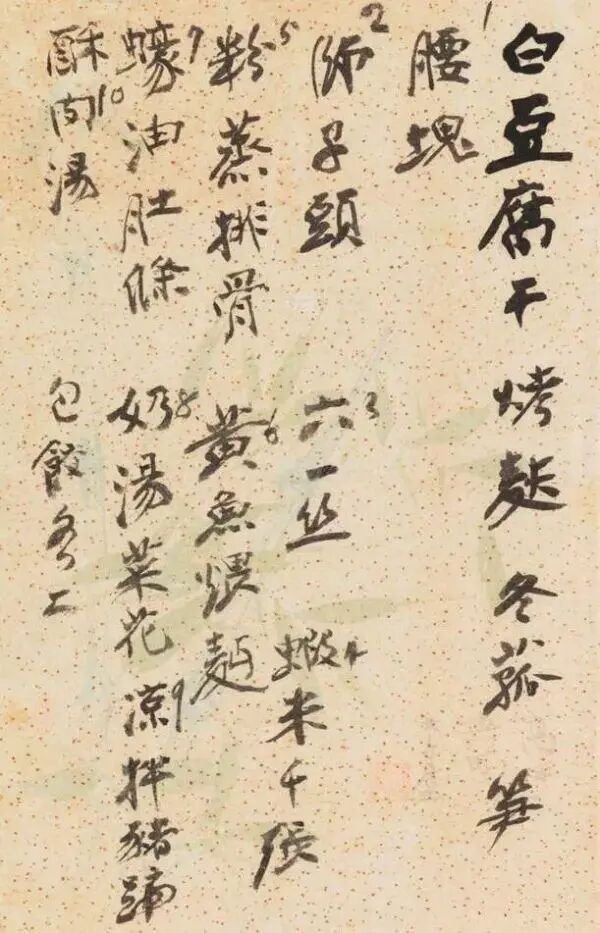 白豆腐干 烤麩 冬菰 笋
腰塊 1
師子頭 2 六一丝 3 蝦米千張 4
粉蒸排骨 5 黄魚煨麵 6
蠔油肚條 7 奶湯菜花 8 凉拌豬蹄 9
酥肉湯 10 包餃